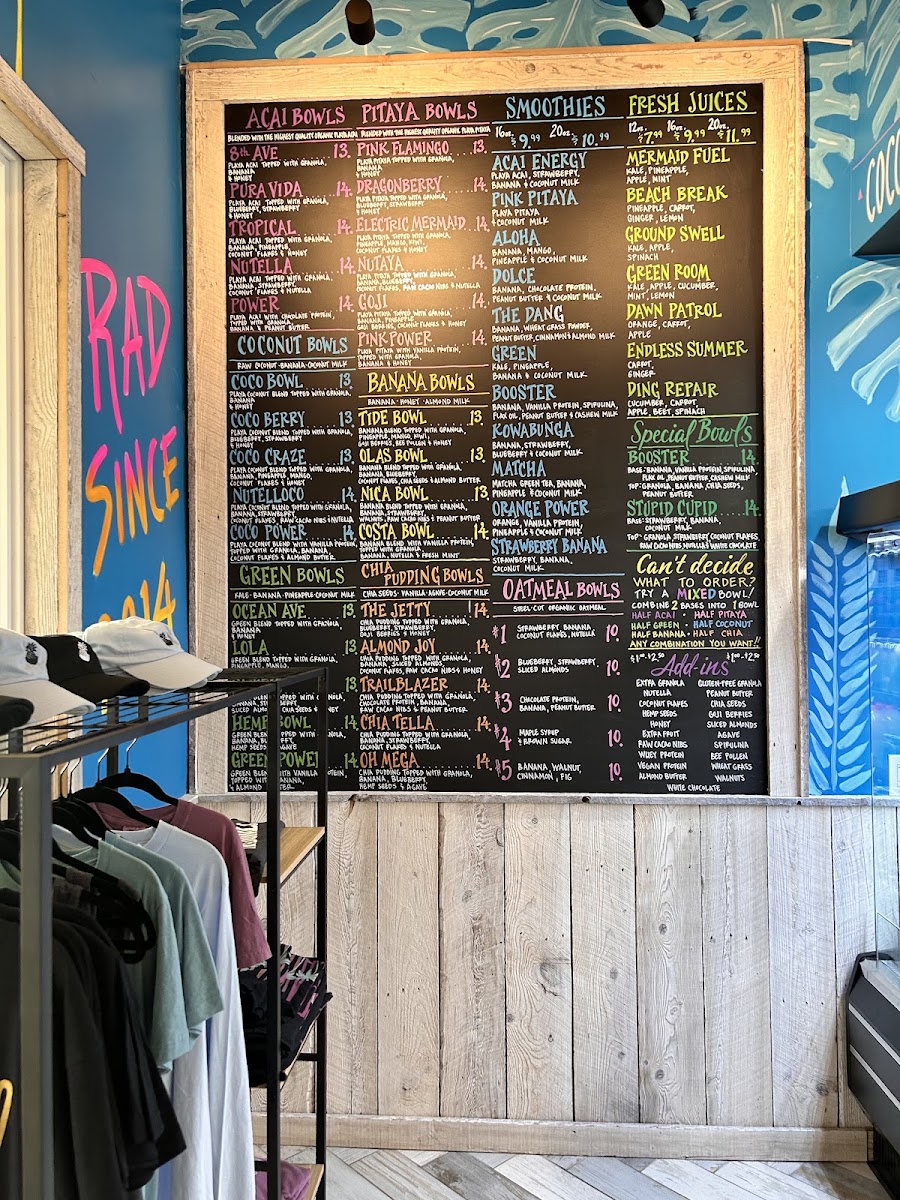 RAD
SINCE
2014
COCO
ACAI BOWLS
BLENDED WITH THE HIGHEST QUALITY ORGANIC PLAYA ACAI
8th AVE 13.
PLAYA ACAI TOPPED WITH GRANOLA,
BANANA
& HONEY
PURA VIDA 14.
PLAYA ACAI TOPPED WITH GRANOLA,
BLUEBERRY, STRAWBERRY
& HONEY
TROPICAL 14.
PLAYA ACAI TOPPED WITH GRANOLA,
BANANA, PINEAPPLE,
COCONUT FLAKES & HONEY
NUTELLA 14.
PLAYA ACAI TOPPED WITH GRANOLA,
BANANA, STRAWBERRY,
COCONUT FLAKES & NUTELLA
POWER 14.
PLAYA ACAI WITH CHOCOLATE PROTEIN,
TOPPED WITH GRANOLA,
BANANA & PEANUT BUTTER
COCONUT BOWLS
RAW COCONUT·BANANA·COCONUT MILK
COCO BOWL 13.
PLAYA COCONUT BLEND TOPPED WITH GRANOLA,
BANANA
& HONEY
COCO BERRY 13.
PLAYA COCONUT BLEND TOPPED WITH GRANOLA,
BLUEBERRY, STRAWBERRY
& HONEY
COCO CRAZE 13.
PLAYA COCONUT BLEND TOPPED WITH GRANOLA,
BANANA, PINEAPPLE, MANGO,
COCONUT FLAKES & HONEY
NUTELLOCO 14.
COCONUT BLEND TOPPED WITH GRANOLA,
BANANA, STRAWBERRY,
COCONUT FLAKES, RAW CACAO NIBS & NUTELLA
COCO POWER 14.
PLAYA COCONUT BLEND WITH VANILLA PROTEIN,
TOPPED WITH GRANOLA, BANANA,
COCONUT FLAKES & ALMOND BUTTER
GREEN BOWLS
KALE·BANANA·PINEAPPLE·COCONUT MILK
OCEAN AVE. 13.
GREEN BLEND TOPPED WITH GRANOLA,
BANANA
& HONEY
LOLA 13.
GREEN BLEND TOPPED WITH GRANOLA,
PINEAPPLE, MANGO,
13.
GRANOLA,
SLICED ALMONDS, CHIA SEEDS &
HEMP BOWL 14.
GREEN BLEND
BANANA,
HEMP SEEDS & AGAVE
GREEN POWER 14.
GREEN BLEND WITH VANILLA PROTEIN,
TOPPED WITH
ALMOND BUTTER
PITAYA BOWLS
BLENDED WITH THE HIGHEST QUALITY ORGANIC PLAYA PITAYA
PINK FLAMINGO 13.
PLAYA PITAYA TOPPED WITH GRANOLA,
BANANA
& HONEY
DRAGONBERRY 14.
PLAYA PITAYA TOPPED WITH GRANOLA,
BLUEBERRY, STRAWBERRY
& HONEY
ELECTRIC MERMAID 14.
PLAYA PITAYA TOPPED WITH GRANOLA,
PINEAPPLE, MANGO, KIWI,
COCONUT FLAKES & HONEY
NUTAYA 14.
PLAYA PITAYA TOPPED WITH GRANOLA,
BANANA, BLUEBERRY,
COCONUT FLAKES, RAW CACAO NIBS & NUTELLA
GOJI 14.
PLAYA PITAYA TOPPED WITH GRANOLA,
BANANA, PINEAPPLE
GOJI BERRIES, COCONUT FLAKES & HONEY
PINK POWER 14.
PLAYA PITAYA WITH VANILLA PROTEIN,
TOPPED WITH GRANOLA,
BANANA & HONEY
BANANA BOWLS
BANANA·HONEY·ALMOND MILK
TIDE BOWL 13.
BANANA BLEND TOPPED WITH GRANOLA,
PINEAPPLE, MANGO, KIWI,
GOJI BERRIES, BEE POLLEN & HONEY
OLAS BOWL 13.
BANANA BLEND TOPPED WITH GRANOLA,
BANANA, BLUEBERRY,
COCONUT FLAKES, CHIA SEEDS & ALMOND BUTTER
NICA BOWL 13.
BANANA BLEND TOPPED WITH GRANOLA,
BANANA, STRAWBERRY,
WALNUTS, RAW CACAO NIBS & PEANUT BUTTER
COSTA BOWL 14.
BANANA BLEND TOPPED WITH GRANOLA,
BANANA, NUTELLA & FRESH MINT
CHIA
PUDDING BOWLS
CHIA SEEDS·VANILLA·AGAVE·COCONUT MILK
THE JETTY 14.
CHIA PUDDING TOPPED WITH GRANOLA,
BLUEBERRY, STRAWBERRY,
GOJI BERRIES & HONEY
ALMOND JOY 14.
CHIA PUDDING TOPPED WITH GRANOLA,
BANANA, SLICED ALMONDS,
COCONUT FLAKES, RAW CACAO NIBS & HONEY
TRAILBLAZER 14.
CHIA PUDDING TOPPED WITH GRANOLA,
CHOCOLATE PROTEIN, BANANA,
RAW CACAO NIBS & PEANUT BUTTER
CHIA TELLA 14.
CHIA PUDDING TOPPED WITH GRANOLA,
BANANA, STRAWBERRY,
COCONUT FLAKES & NUTELLA
OH MEGA 14.
CHIA PUDDING TOPPED WITH GRANOLA,
BANANA, BLUEBERRY,
HEMP SEEDS & AGAVE
SMOOTHIES
16oz. $9.99 20oz. $10.99
ACAI ENERGY
PLAYA ACAI, STRAWBERRY,
BANANA & COCONUT MILK
PINK PITAYA
PLAYA PITAYA
& COCONUT MILK
ALOHA
BANANA, MANGO,
PINEAPPLE & COCONUT MILK
DOLCE
BANANA, CHOCOLATE PROTEIN,
PEANUT BUTTER & COCONUT MILK
THE DANG
BANANA, WHEAT GRASS POWDER,
PEANUT BUTTER, CINNAMON & ALMOND MILK
GREEN
KALE, PINEAPPLE,
BANANA & COCONUT MILK
BOOSTER
BANANA, VANILLA PROTEIN, SPIRULINA,
FLAX OIL, PEANUT BUTTER & CASHEW MILK
KOWABUNGA
BANANA, STRAWBERRY,
BLUEBERRY & COCONUT MILK
MATCHA
MATCHA GREEN TEA, BANANA,
PINEAPPLE & COCONUT MILK
ORANGE POWER
ORANGE, VANILLA PROTEIN,
PINEAPPLE & COCONUT MILK
STRAWBERRY BANANA
STRAWBERRY, BANANA,
COCONUT MILK
OATMEAL BOWLS
STEEL-CUT ORGANIC OATMEAL
#1 STRAWBERRY, BANANA 10.
COCONUT FLAKES, NUTELLA
#2 BLUEBERRY, STRAWBERRY, 10.
SLICED ALMONDS
#3 CHOCOLATE PROTEIN, 10.
BANANA, PEANUT BUTTER
#4 MAPLE SYRUP 10.
& BROWN SUGAR
#5 BANANA, WALNUT, 10.
CINNAMON, FIG
FRESH JUICES
12oz. $7.99 16oz. $9.99 20oz. $11.99
MERMAID FUEL
KALE, PINEAPPLE,
APPLE, MINT
BEACH BREAK
PINEAPPLE, CARROT,
GINGER, LEMON
GROUND SWELL
KALE, APPLE,
SPINACH
GREEN ROOM
KALE, APPLE, CUCUMBER,
MINT, LEMON
DAWN PATROL
ORANGE, CARROT,
APPLE
ENDLESS SUMMER
CARROT,
GINGER
DING REPAIR
CUCUMBER, CARROT,
APPLE, BEET, SPINACH
Special Bowls
BOOSTER 14.
BASE: BANANA, VANILLA PROTEIN, SPIRULINA
FLAX OIL, PEANUT BUTTER, CASHEW MILK
TOP: GRANOLA, BANANA, CHIA SEEDS,
PEANUT BUTTER
STUPID CUPID 14.
BASE: STRAWBERRY, BANANA,
COCONUT MILK
TOP: GRANOLA, STRAWBERRY, COCONUT FLAKES,
RAW CACAO NIBS, NUTELLA & WHITE CHOCOLATE
Can't decide
WHAT TO ORDER?
TRY A MIXED BOWL!
COMBINE 2 BASES INTO 1 BOWL
HALF ACAI · HALF PITAYA
HALF GREEN · HALF COCONUT
HALF BANANA · HALF CHIA
ANY COMBINATION YOU WANT!!
Add-ins
EXTRA GRANOLA
NUTELLA
COCONUT FLAKES
HEMP SEEDS
HONEY
EXTRA FRUIT
RAW CACAO NIBS
WHEY PROTEIN
VEGAN PROTEIN
ALMOND BUTTER
GLUTEN-FREE GRANOLA
PEANUT BUTTER
CHIA SEEDS
GOJI BERRIES
SLICED ALMONDS
AGAVE
SPIRULINA
BEE POLLEN
WHEAT GRASS
WALNUTS
WHITE CHOCOLATE